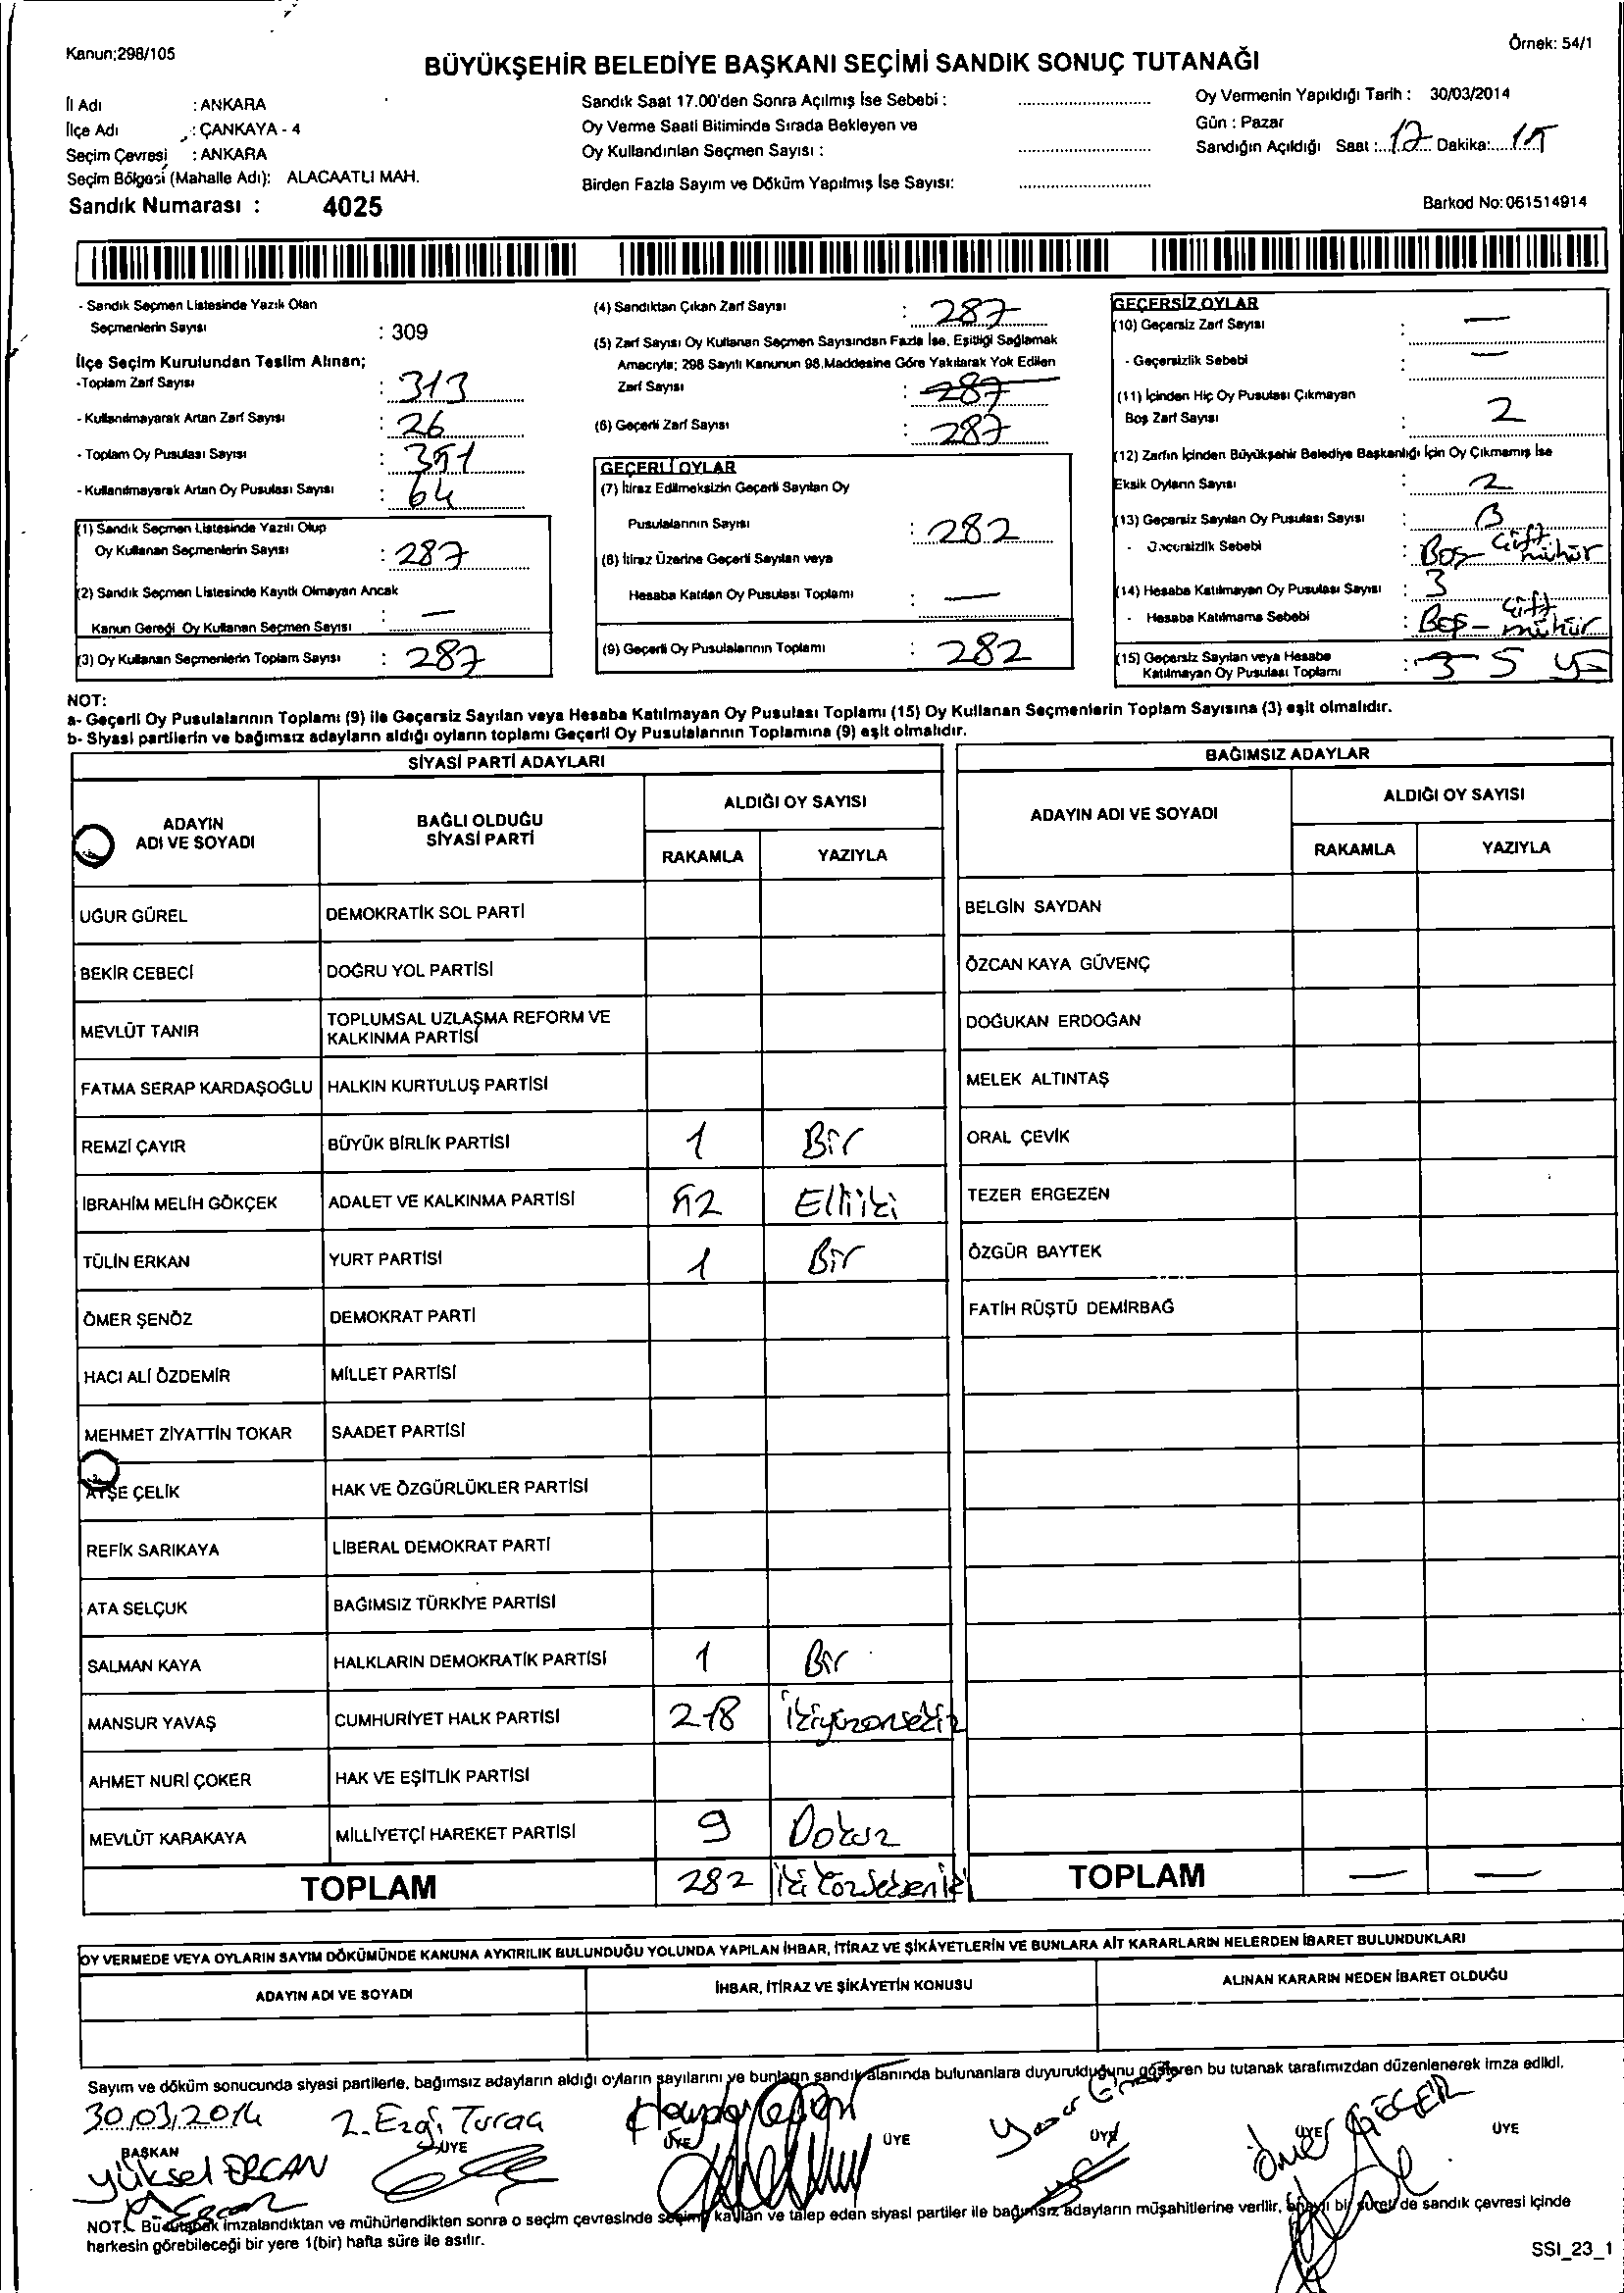 Kanun:298/105
Örnek: 54/1
BÜYÜKŞEHİR BELEDİYE BAŞKANI SEÇİMİ SANDIK SONUÇ TUTANAĞI
İl Adı : ANKARA
İlçe Adı : ÇANKAYA - 4
Seçim Çevresi : ANKARA
Seçim Bölgesi (Mahalle Adı): ALACAATLI MAH.
Sandık Numarası : 4025
Sandık Saat 17.00'den Sonra Açılmış İse Sebebi :
Oy Verme Saati Bitiminde Sırada Bekleyen ve
Oy Kullandırılan Seçmen Sayısı :
Birden Fazla Sayım ve Döküm Yapılmış İse Sayısı:
Oy Vermenin Yapıldığı Tarih : 30/03/2014
Gün : Pazar
Sandığın Açıldığı Saat : 17 Dakika: 15
Barkod No: 061514914
- Sandık Seçmen Listesinde Yazılı Olan
Seçmenlerin Sayısı : 309
İlçe Seçim Kurulundan Teslim Alınan;
-Toplam Zarf Sayısı : 313
- Kullanılmayarak Artan Zarf Sayısı : 26
- Toplam Oy Pusulası Sayısı : 351
- Kullanılmayarak Artan Oy Pusulası Sayısı : 64
(1) Sandık Seçmen Listesinde Yazılı Olup
Oy Kullanan Seçmenlerin Sayısı : 287
(2) Sandık Seçmen Listesinde Kayıtlı Olmayan Ancak
Kanun Gereği Oy Kullanan Seçmen Sayısı : —
(3) Oy Kullanan Seçmenlerin Toplam Sayısı : 287
(4) Sandıktan Çıkan Zarf Sayısı : 287
(5) Zarf Sayısı Oy Kullanan Seçmen Sayısından Fazla İse, Eşitliği Sağlamak
Amacıyla; 298 Sayılı Kanunun 98.Maddesine Göre Yakılarak Yok Edilen
Zarf Sayısı : 287
(6) Geçerli Zarf Sayısı : 287
GEÇERLİ OYLAR
(7) İtiraz Edilmeksizin Geçerli Sayılan Oy
Pusulalarının Sayısı : 282
(8) İtiraz Üzerine Geçerli Sayılan veya
Hesaba Katılan Oy Pusulası Toplamı : —
(9) Geçerli Oy Pusulalarının Toplamı : 282
GEÇERSİZ OYLAR
(10) Geçersiz Zarf Sayısı : —
- Geçersizlik Sebebi : —
(11) İçinden Hiç Oy Pusulası Çıkmayan
Boş Zarf Sayısı : 2
(12) Zarfın İçinden Büyükşehir Belediye Başkanlığı İçin Oy Çıkmamış İse
Eksik Oyların Sayısı : 2
(13) Geçersiz Sayılan Oy Pusulası Sayısı : 3
- Geçersizlik Sebebi : Boş - Çift mühür
(14) Hesaba Katılmayan Oy Pusulası Sayısı : 3
- Hesaba Katılmama Sebebi : Boş - Çift mühür
(15) Geçersiz Sayılan veya Hesabe
Katılmayan Oy Pusulası Toplamı : 3 5
NOT:
a- Geçerli Oy Pusulalarının Toplamı (9) ile Geçersiz Sayılan veya Hesaba Katılmayan Oy Pusulası Toplamı (15) Oy Kullanan Seçmenlerin Toplam Sayısına (3) eşit olmalıdır.
b- Siyasi partilerin ve bağımsız adayların aldığı oyların toplamı Geçerli Oy Pusulalarının Toplamına (9) eşit olmalıdır.
SİYASİ PARTİ ADAYLARI
ADAYIN ADI VE SOYADI
BAĞLI OLDUĞU SİYASİ PARTİ
ALDIĞI OY SAYISI
RAKAMLA YAZIYLA
UĞUR GÜREL DEMOKRATİK SOL PARTİ
BEKİR CEBECİ DOĞRU YOL PARTİSİ
MEVLÜT TANIR TOPLUMSAL UZLAŞMA REFORM VE KALKINMA PARTİSİ
FATMA SERAP KARDAŞOĞLU HALKIN KURTULUŞ PARTİSİ
REMZİ ÇAYIR BÜYÜK BİRLİK PARTİSİ 1 Bir
İBRAHİM MELİH GÖKÇEK ADALET VE KALKINMA PARTİSİ 52 Elliiki
TÜLİN ERKAN YURT PARTİSİ 1 Bir
ÖMER ŞENÖZ DEMOKRAT PARTİ
HACI ALİ ÖZDEMİR MİLLET PARTİSİ
MEHMET ZİYATTİN TOKAR SAADET PARTİSİ
AYŞE ÇELİK HAK VE ÖZGÜRLÜKLER PARTİSİ
REFİK SARIKAYA LİBERAL DEMOKRAT PARTİ
ATA SELÇUK BAĞIMSIZ TÜRKİYE PARTİSİ
SALMAN KAYA HALKLARIN DEMOKRATİK PARTİSİ 1 Bir
MANSUR YAVAŞ CUMHURİYET HALK PARTİSİ 218 ikiyüzonsekiz
AHMET NURİ ÇOKER HAK VE EŞİTLİK PARTİSİ
MEVLÜT KARAKAYA MİLLİYETÇİ HAREKET PARTİSİ 9 Dokuz
TOPLAM 282
BAĞIMSIZ ADAYLAR
ADAYIN ADI VE SOYADI
ALDIĞI OY SAYISI
RAKAMLA YAZIYLA
BELGİN SAYDAN
ÖZCAN KAYA GÜVENÇ
DOĞUKAN ERDOĞAN
MELEK ALTINTAŞ
ORAL ÇEVİK
TEZER ERGEZEN
ÖZGÜR BAYTEK
FATİH RÜŞTÜ DEMİRBAĞ
TOPLAM — —
OY VERMEDE VEYA OYLARIN SAYIM DÖKÜMÜNDE KANUNA AYKIRILIK BULUNDUĞU YOLUNDA YAPILAN İHBAR, İTİRAZ VE ŞİKÂYETLERİN VE BUNLARA AİT KARARLARIN NELERDEN İBARET BULUNDUKLARI
ADAYIN ADI VE SOYADI
İHBAR, İTİRAZ VE ŞİKÂYETİN KONUSU
ALINAN KARARIN NEDEN İBARET OLDUĞU
Sayım ve döküm sonucunda siyasi partilerle, bağımsız adayların aldığı oyların sayılarını ve bunların sandık alanında bulunanlara duyurulduğunu gösteren bu tutanak tarafımızdan düzenlenerek imza edildi.
30.03.2014
BAŞKAN ÜYE ÜYE ÜYE ÜYE ÜYE ÜYE
Yüksel ERCAN
NOT: Bu tutanak imzalandıktan ve mühürlendikten sonra o seçim çevresinde seçime katılan ve talep eden siyasi partiler ile bağımsız adayların müşahitlerine verilir, onaylı bir sureti de sandık çevresi içinde
herkesin görebileceği bir yere 1(bir) hafta süre ile asılır.
SSI_23_1